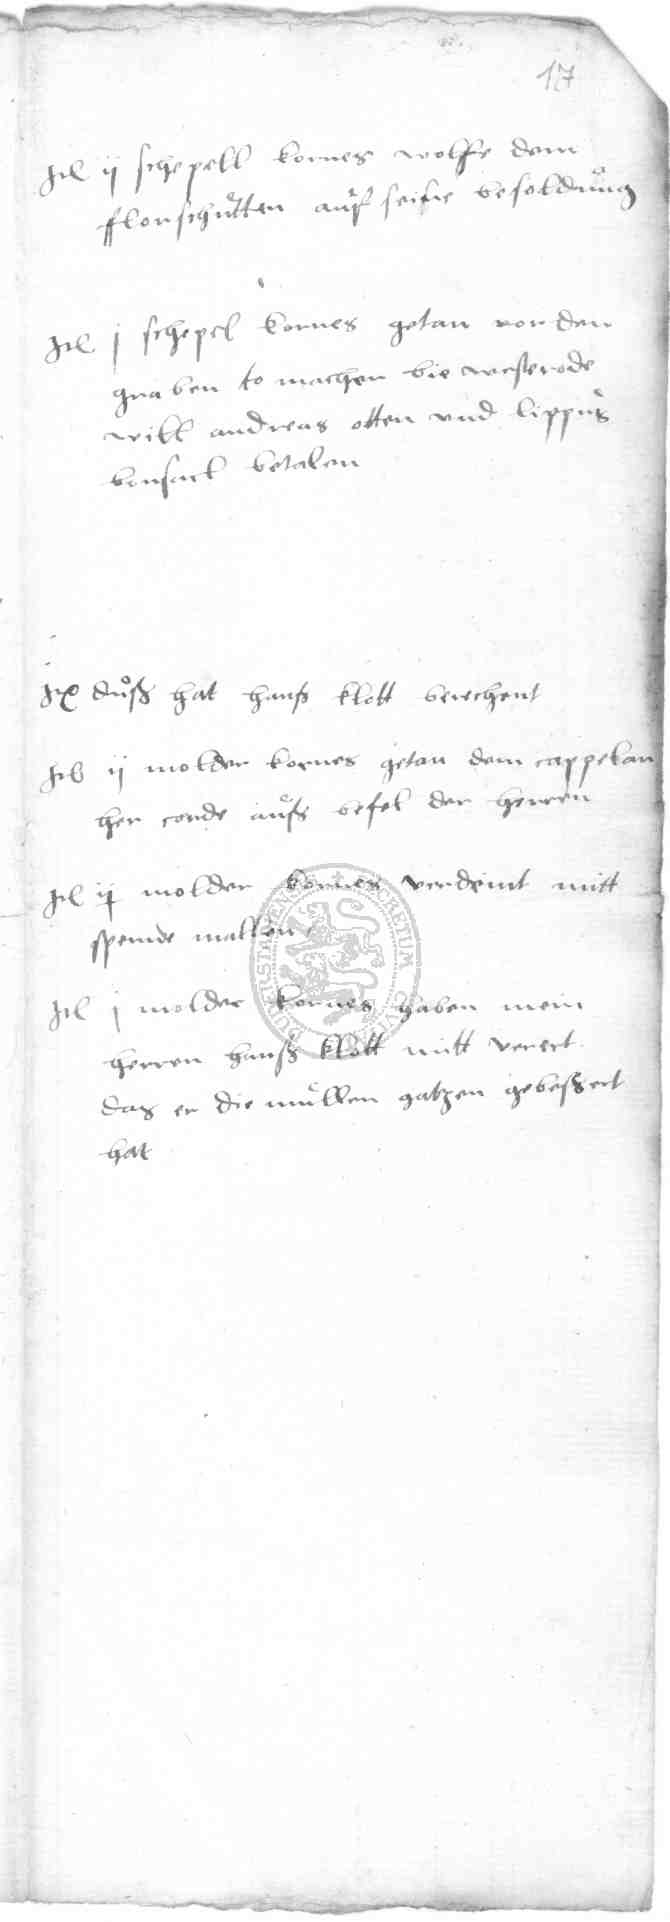 17
It ij schepell kornes wolffe dem
fflorschůtten aůf seine besoldůng
It j schepel kornes getan von den
graben to machen bie westerode
will andreas otten vnd lippůs
bonsack betalen
It důsz hat hansz klott berechent
It ij molder kornes getan dem cappelan
her corde aůfs befel der herren
It ij molder kornes verdeint mitt
spende mallen
It j molder kornes haben mein
herren hansz klott mitt vorert
das er die můllen gatzen gebeszert
hat
SECRETUM